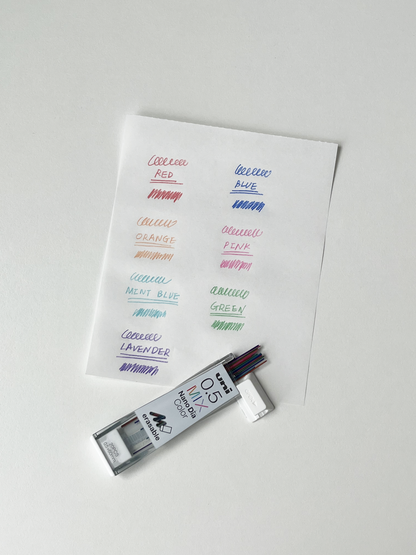 RED
BLUE
ORANGE
PINK
MINT BLUE
GREEN
LAVENDER
uni
0.5
MIX
NanoDia
Color
erasable